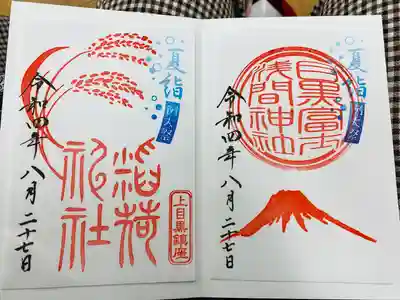 夏詣
例大祭
令和四年八月二十七日
稲荷
神社
上目黒鎮座
夏詣
例大祭
目黒富士
浅間神社
令和四年八月二十七日